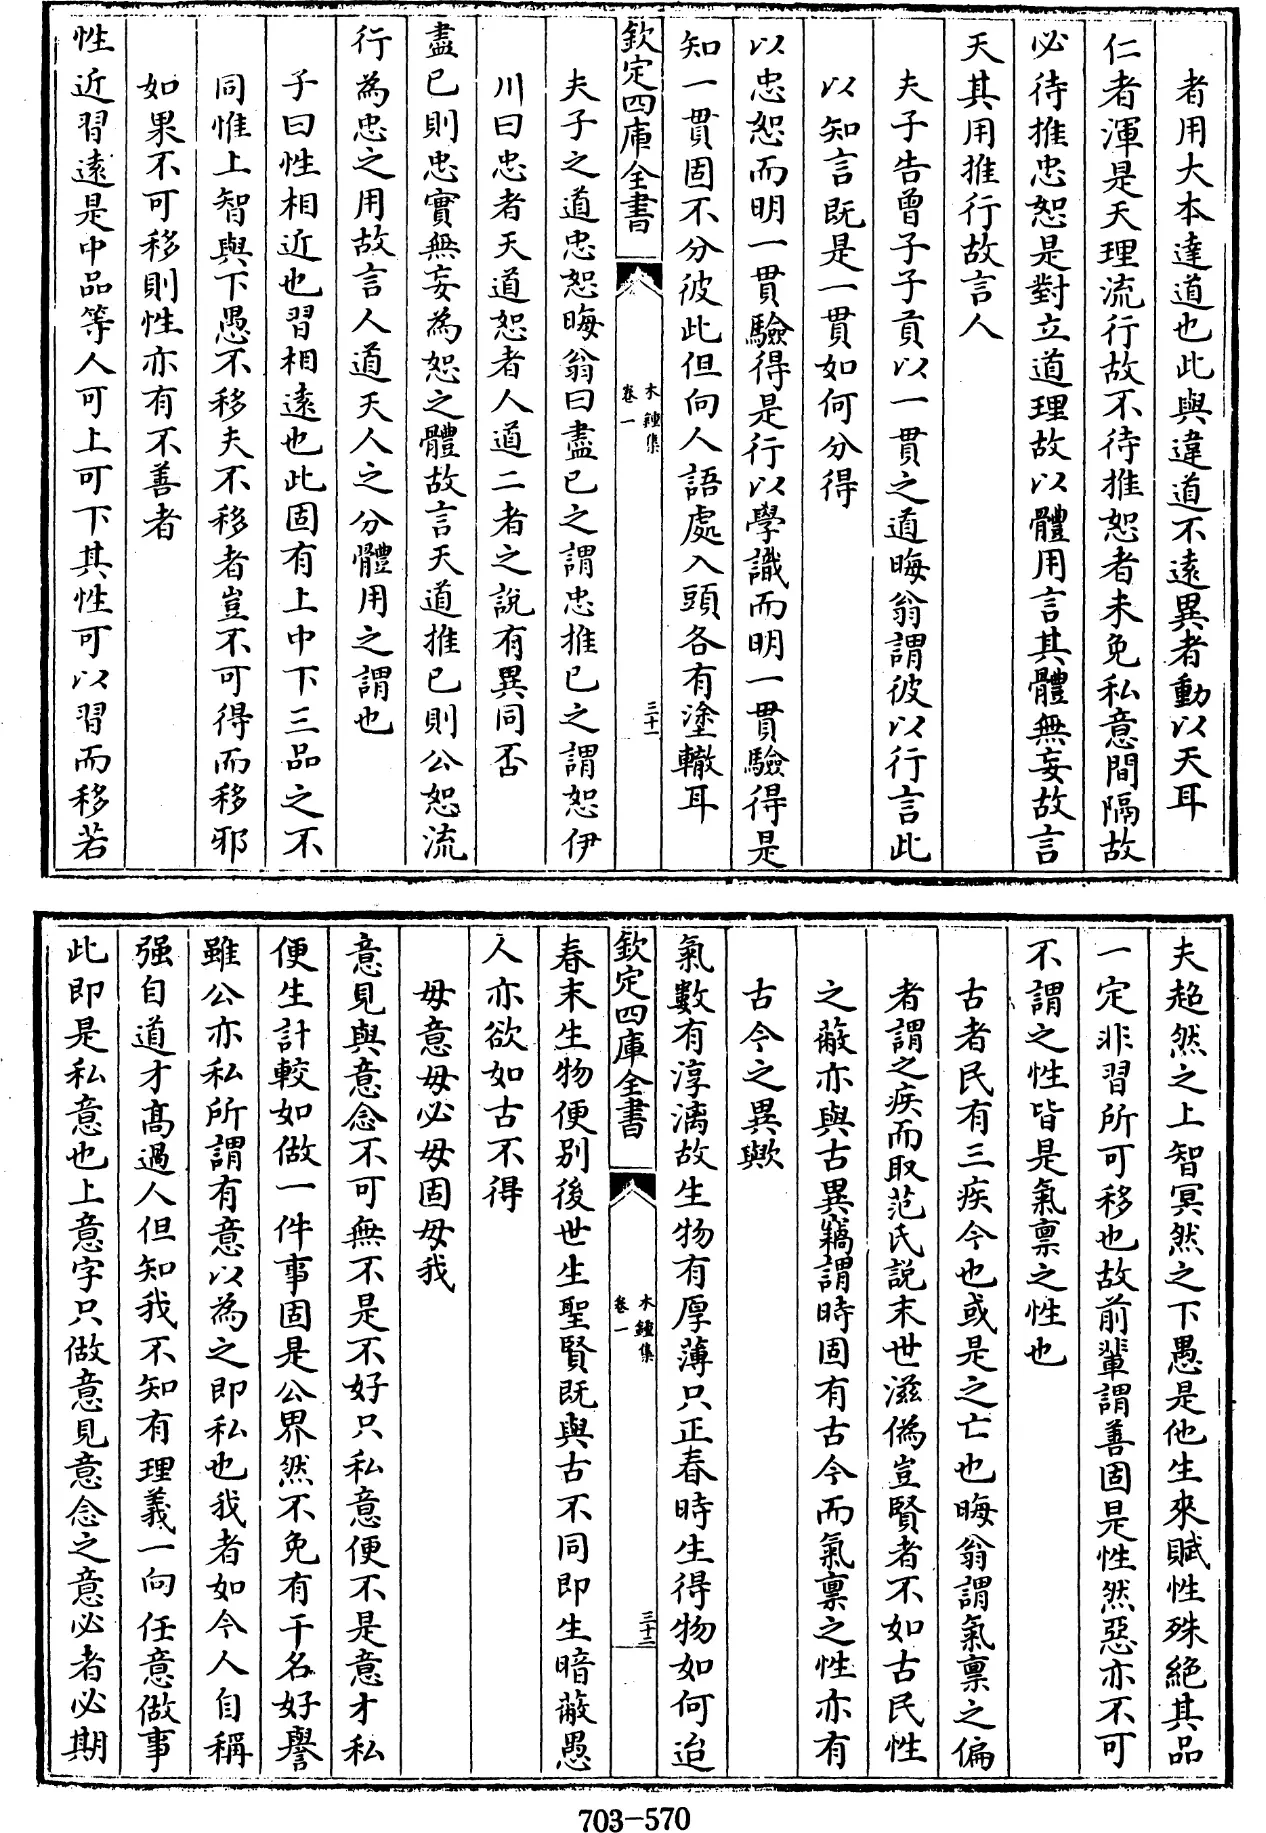 者用大本達道也此與違道不遠異者動以天耳
仁者渾是天理流行故不待推恕者未免私意間隔故
必待推忠恕是對立道理故以體用言其體無妄故言
天其用推行故言人
夫子告曾子子貢以一貫之道晦翁謂彼以行言此
以知言既是一貫如何分得
以忠恕而明一貫驗得是行以學識而明一貫驗得是
知一貫固不分彼此但向人語處入頭各有塗轍耳
欽定四庫全書
木鐘集
卷一
三十一
夫子之道忠恕晦翁曰盡已之謂忠推已之謂恕伊
川曰忠者天道恕者人道二者之說有異同否
盡已則忠實無妄為恕之體故言天道推已則公恕流
行為忠之用故言人道天人之分體用之謂也
子曰性相近也習相遠也此固有上中下三品之不
同惟上智與下愚不移夫不移者豈不可得而移邪
如果不可移則性亦有不善者
性近習遠是中品等人可上可下其性可以習而移若
夫超然之上智冥然之下愚是他生來賦性殊絕其品
一定非習所可移也故前輩謂善固是性然惡亦不可
不謂之性皆是氣禀之性也
古者民有三疾今也或是之亡也晦翁謂氣禀之偏
者謂之疾而取范氏說末世滋偽豈賢者不如古民性
之蔽亦與古異竊謂時固有古今而氣禀之性亦有
古今之異歟
氣數有淳漓故生物有厚薄只正春時生得物如何迨
欽定四庫全書
木鐘集
卷一
三十二
春末生物便別後世生聖賢既與古不同即生暗蔽愚
人亦欲如古不得
毋意毋必毋固毋我
意見與意念不可無不是不好只私意便不是意才私
便生計較如做一件事固是公界然不免有干名好譽
雖公亦私所謂有意以為之即私也我者如今人自稱
强自道才高過人但知我不知有理義一向任意做事
此即是私意也上意字只做意見意念之意必者必期
703-570